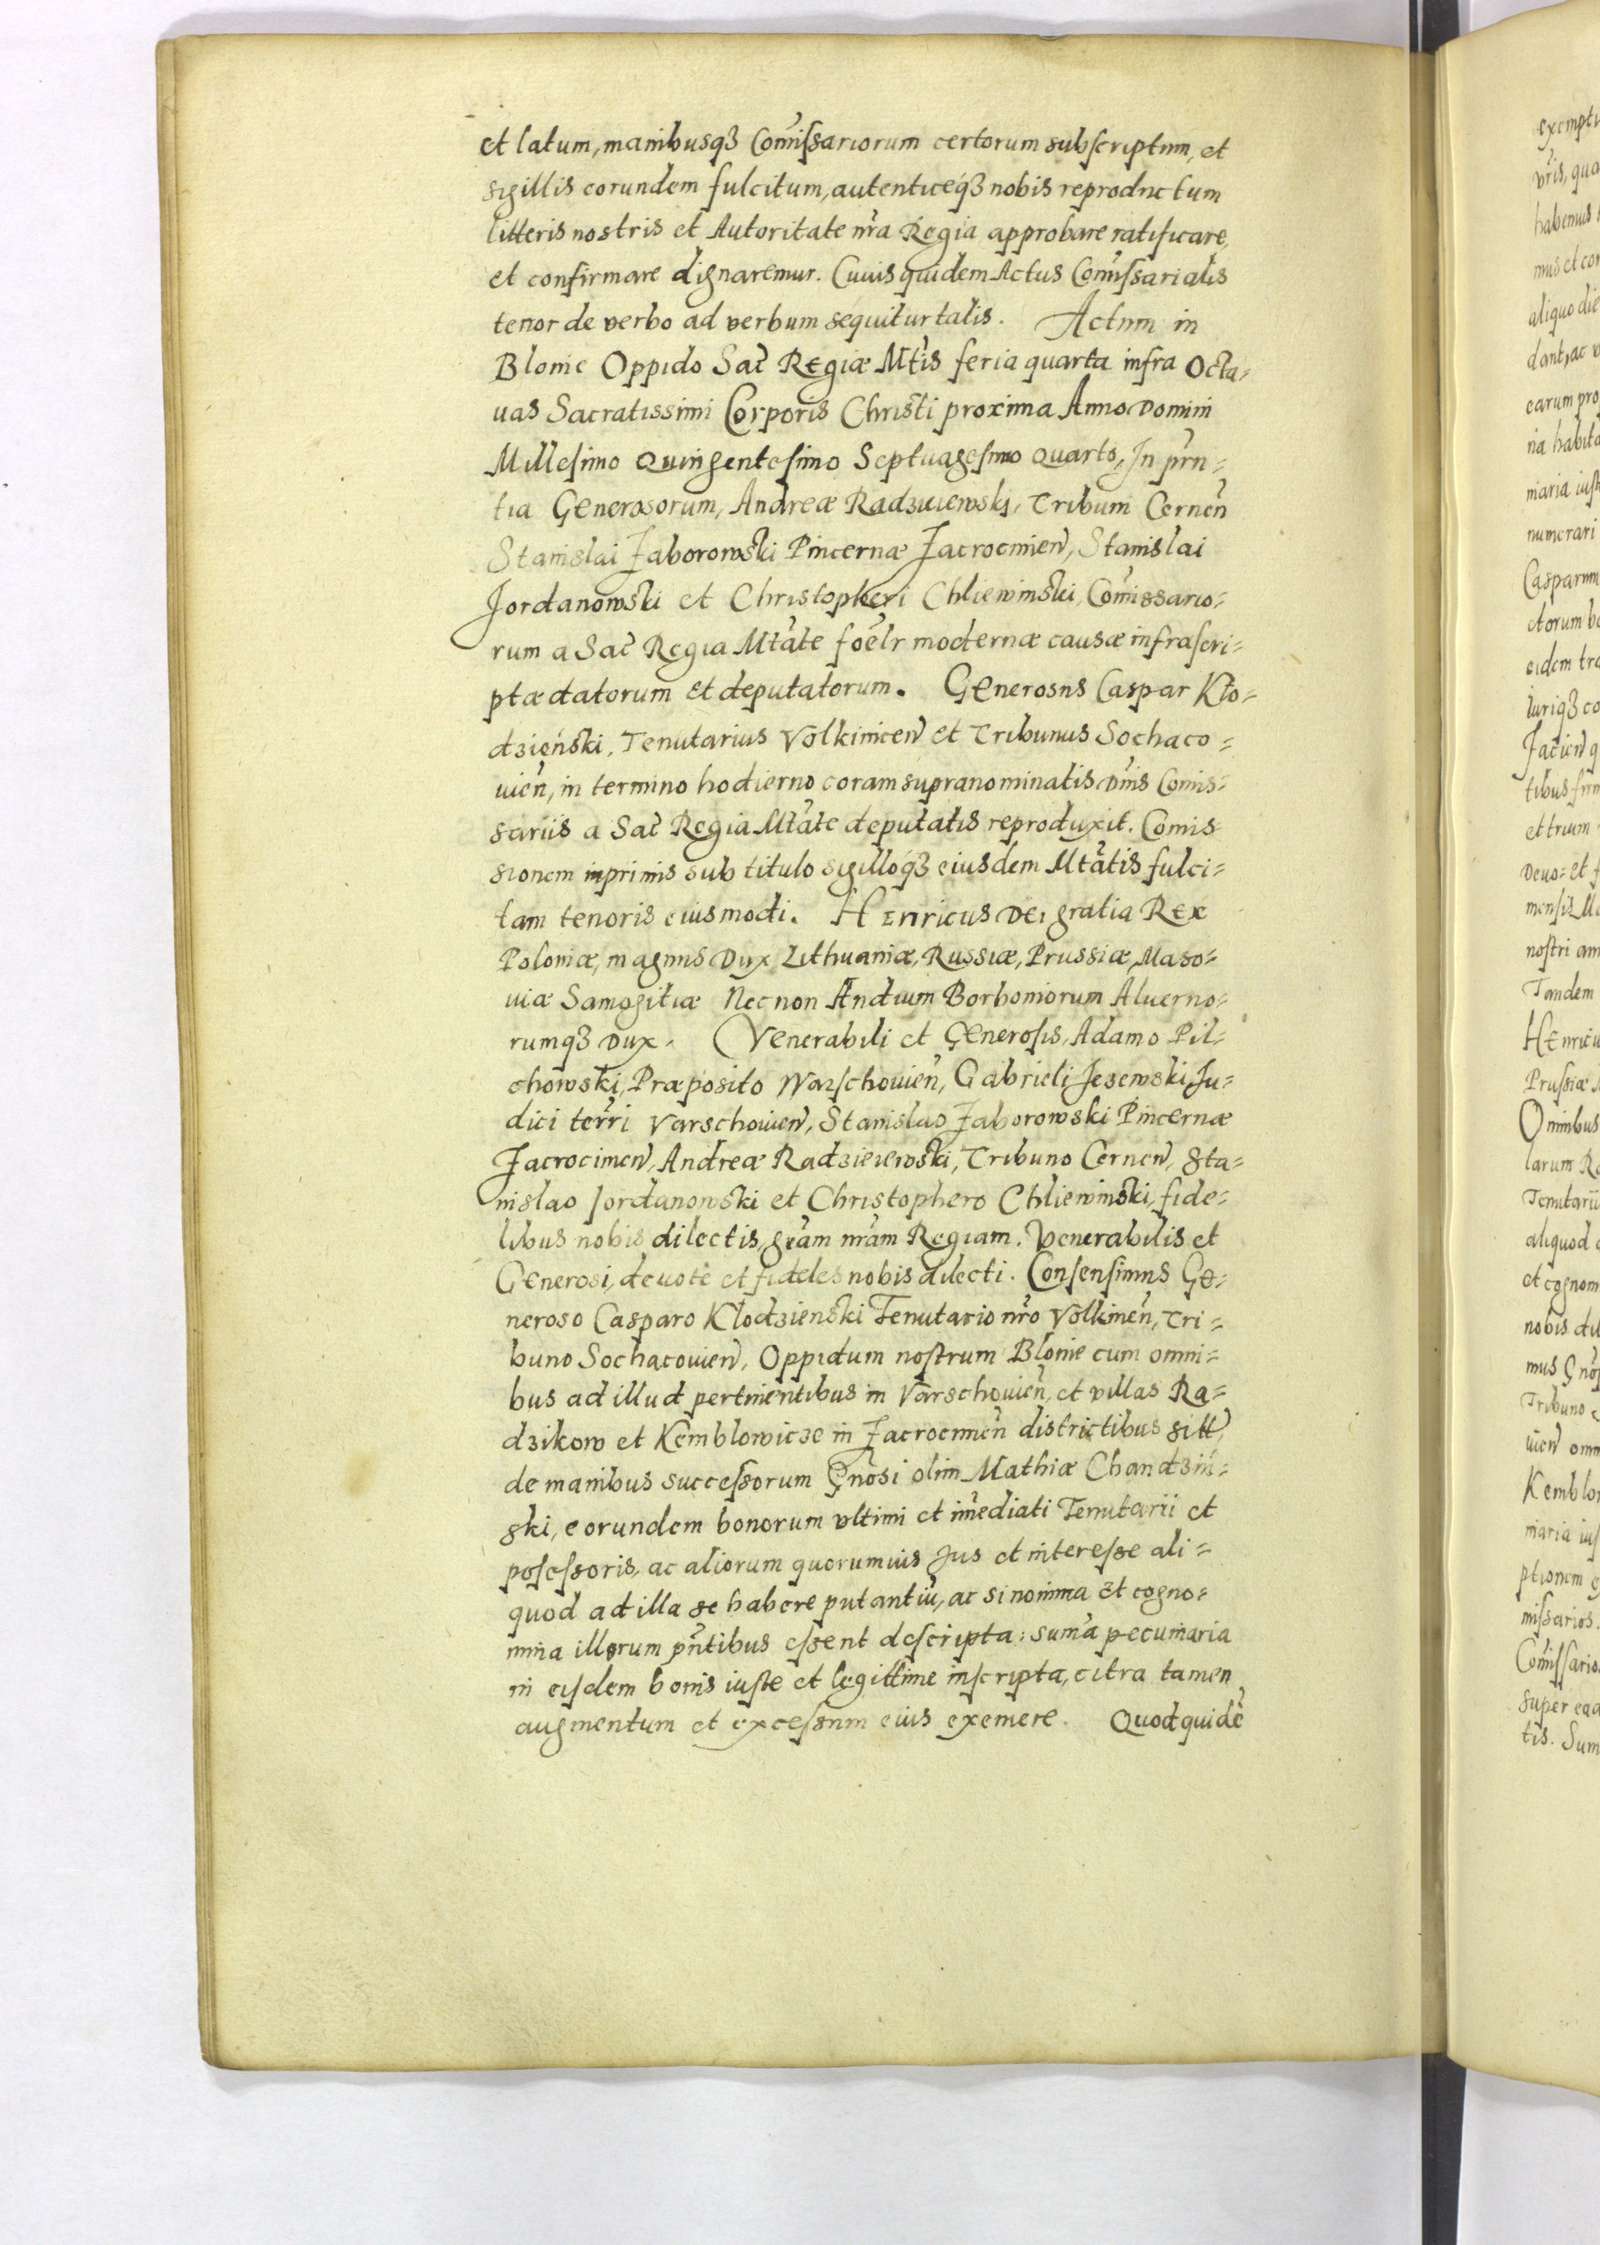 et latum, manibusq3 Com̃issariorum certorum subscriptum, et
sigillis eorundem fulcitum, autenticeq́3 nobis reproductum
litteris nostris et Autoritate nr̃a Regia approbare ratificare,
et confirmare dignaremur. Cuius quidem Actus Com̃issarialis
tenor de verbo ad verbum sequitur talis. Actum in
Blonie Oppido Sac̃ Regiæ Mt̃is feria quarta infra Octa=
uas Sacratissimi Corporis Christi proxima Anno Domini
Millesimo Quingentesimo Septuagesimo Quarto, In pr̃n=
tia Generosorum, Andreæ Radzieiewski, Tribuni Cerneñ
Stanislai Zaborowski Pincernæ Zacrocimeñ, Stanislai
Jordanowski et Christopheri Chliewinski, Com̃issario=
rum a Sac̃ Regia Mtãte foẽlr modernæ causæ infrascri=
ptæ datorum et deputatorum. Generosus Caspar Kło=
dzieński, Tenutarius Volkimiceñ et Tribunus Sochaco=
uieñ, in termino hodierno coram supranominatis Dnĩs Comis=
sariis a Sac̃ Regia Mtãte deputatis reproduxit. Comis
sionem inprimis sub titulo sigilloq́3 eiusdem Mtãtis fulci=
tam tenoris eiusmodi. Henricus Dei gratia Rex
Poloniæ, magnus Dux Lithuaniæ, Russiæ, Prussiæ, Maso=
uiæ Samogitiæ Necnon Andium Borboniorum Aluerno=
rumq3 Dux. Venerabili et Generosis, Adamo Pil=
chowski, Præposito Warschouieñ, Gabrieli Jezewski, Ju=
dici ter̃ri Varschouieñ, Stanislao Zaborowski Pincernæ
Zacrocimeñ, Andreæ Radzieiewski, Tribuno Cerneñ, Sta=
nislao Jordanowski et Christophero Chliewinski, fide=
libus nobis dilectis, grãm nrãm Regiam. Venerabilis et
Generosi, deuote et fideles nobis dilecti. Consensimus Ge=
neroso Casparo Kłodzienski Tenutario nr̃o Volkineñ, Tri=
buno Sochacouieñ, Oppidum nostrum Blonie cum omni=
bus ad illud pertinentibus in Varschouieñ, et villas Ra=
dzikow et Kemblowicze in Zacrocimeñ districtibus sitt,
de manibus successorum Gnõsi olim Mathiæ Chandzin=
ski, eorundem bonorum vltimi et im̃ediati Tenutarii et
posessoris, ac aliorum quorumuis Jus et interesse ali=
quod ad illa se habere putantiũ, ac si nomina et cogno=
mina illorum pñtibus essent descripta: sum̃a pecuniaria
in eisdem bonis iuste et legittime inscripta, citra tamen
augmentum et excessum eius exemere. Quod quidẽ